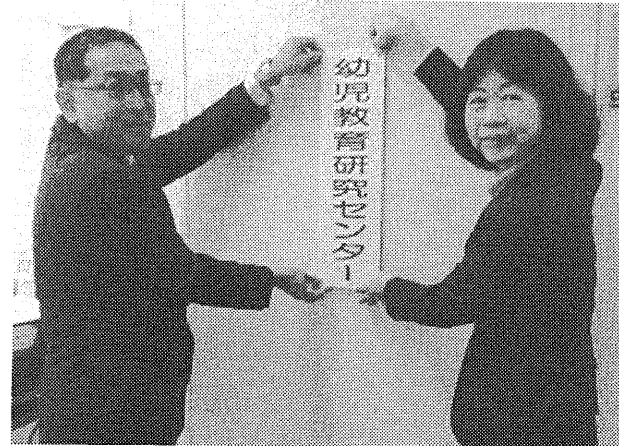 幼児教育研究センター